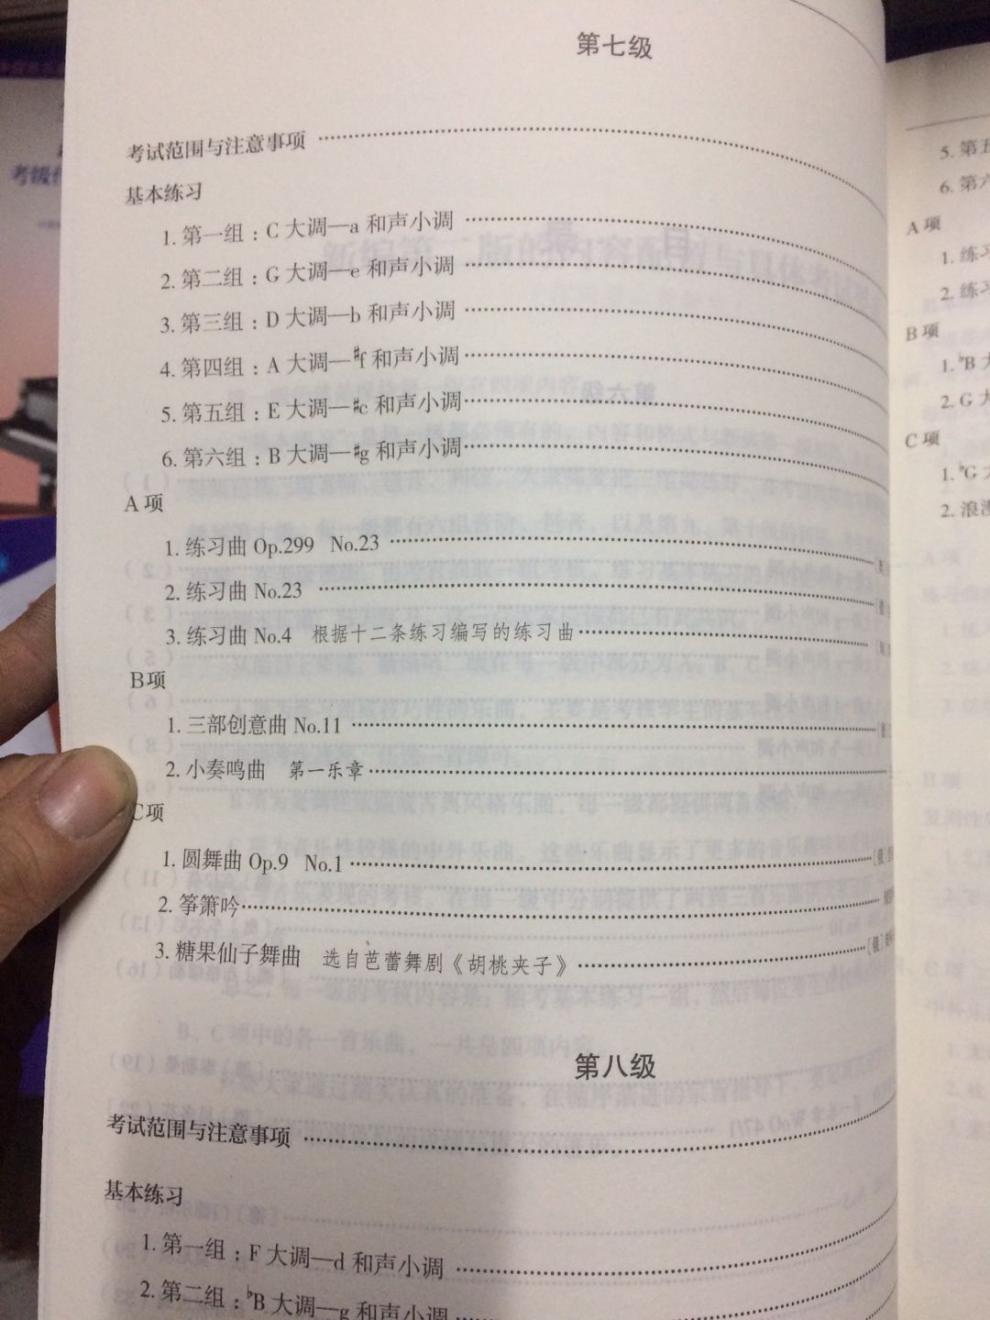 第七级
考试范围与注意事项
基本练习
1. 第一组：C 大调—a 和声小调
2. 第二组：G 大调—e 和声小调
3. 第三组：D 大调—b 和声小调
4. 第四组：A 大调—♯f 和声小调
5. 第五组：E 大调—♯c 和声小调
6. 第六组：B 大调—♯g 和声小调
A 项
1. 练习曲 Op.299 No.23
2. 练习曲 No.23
3. 练习曲 No.4 根据十二条练习编写的练习曲
B项
1. 三部创意曲 No.11
2. 小奏鸣曲 第一乐章
C项
1. 圆舞曲 Op.9 No.1
2. 筝箫吟
3. 糖果仙子舞曲 选自芭蕾舞剧《胡桃夹子》
第八级
考试范围与注意事项
基本练习
1. 第一组：F 大调—d 和声小调
2. 第二组：♭B 大调—g 和声小调
5. 第五
6. 第六
A 项
1. 练习
2. 练习
B 项
1. ♭B 大
2. G 大
C 项
1. ♭G 大
2. 浪漫
考级